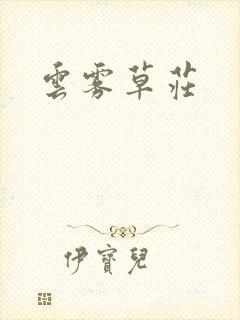 雲霧草莊
伊寶兒